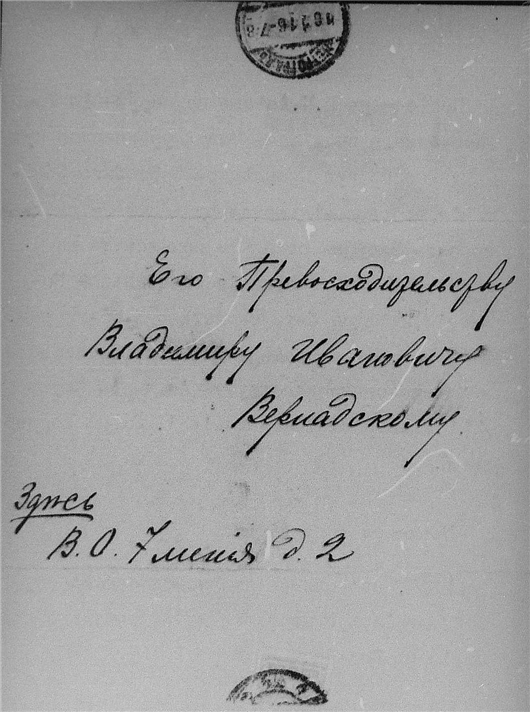 Его Превосходительству
Владимиру Ивановичу
Вернадскому
Здѣсь
В.О. 7 линія д. 2